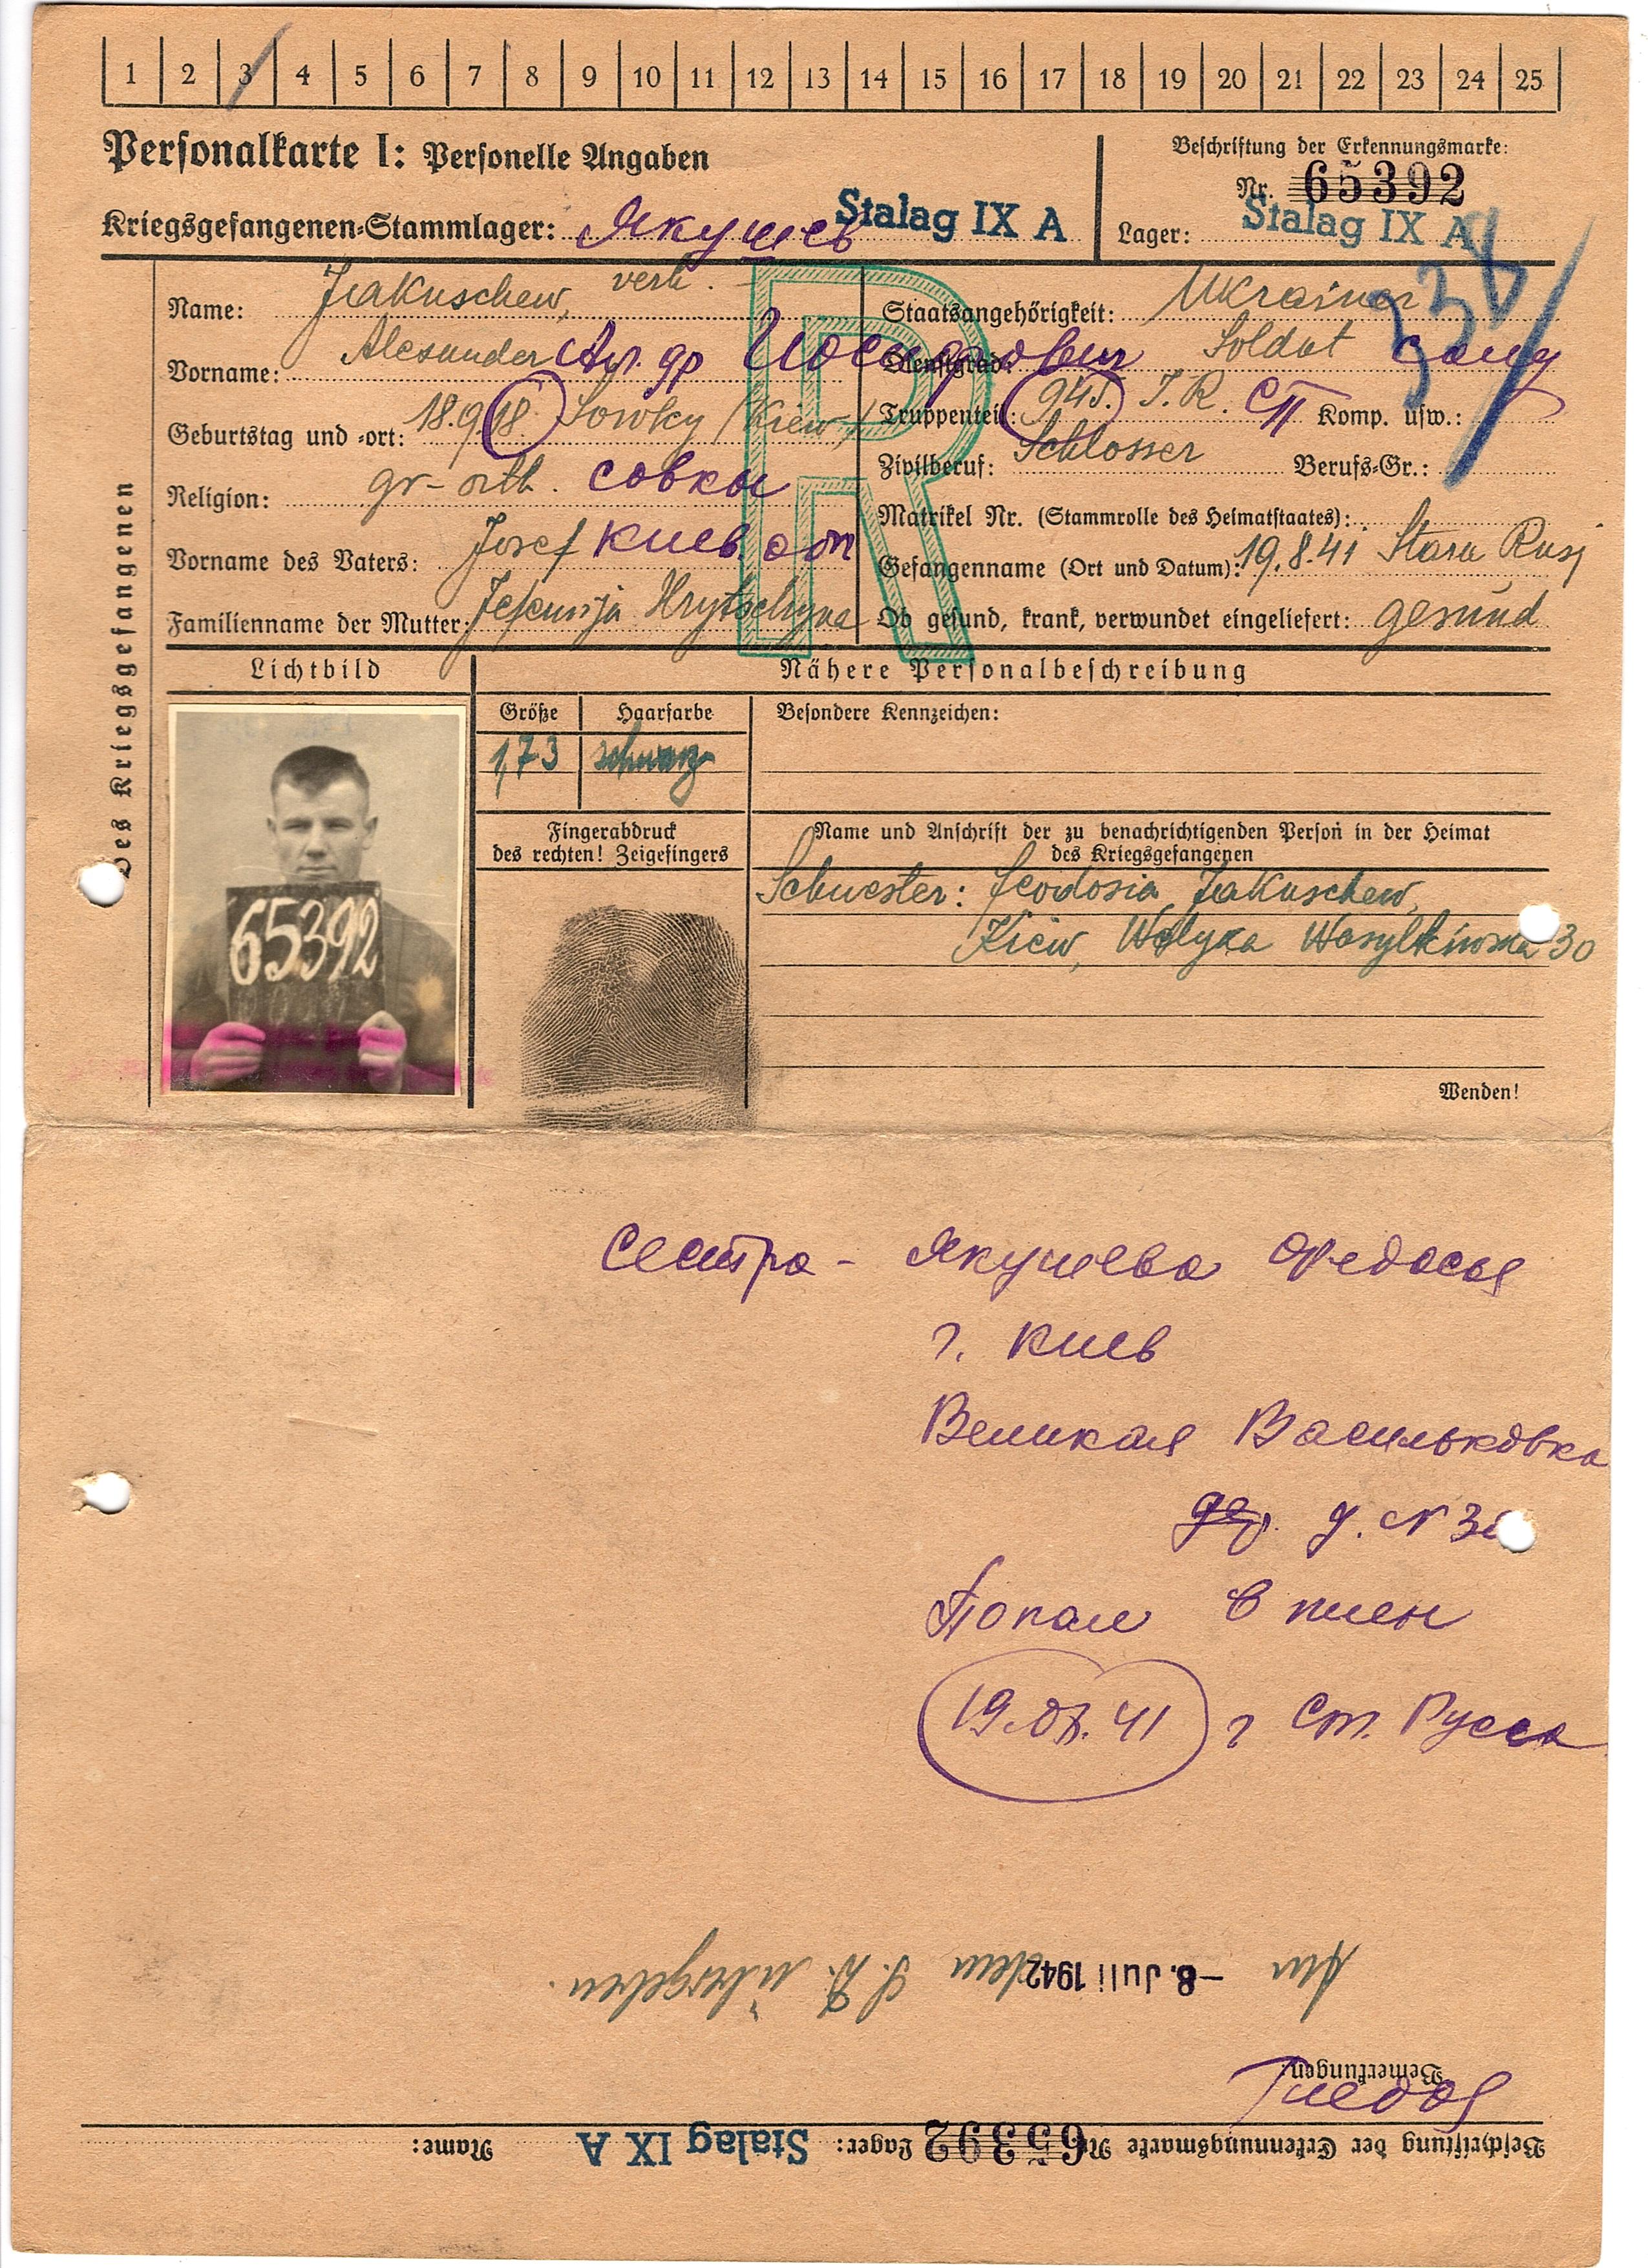 1 2 3 4 5 6 7 8 9 10 11 12 13 14 15 16 17 18 19 20 21 22 23 24 25
Personalkarte I: Personelle Angaben
Kriegsgefangenen-Stammlager: Якушев Stalag IX A
Beschriftung der Erkennungsmarke:
Nr. 65392
Lager: Stalag IX A
Des Kriegsgefangenen
Name: Jakuschew, verh.
Vorname: Alexander Ал-др Иосифович
Geburtstag und -ort: 18.9.18. Sowky (Kiew)
Religion: gr-orth. Совки
Vorname des Vaters: Josef Киев обл
Familienname der Mutter: Hrytschyna
Staatsangehörigkeit: Ukrainer
Dienstgrad: Soldat солд
Truppenteil: 945. J.R. СП Komp. usw.:
Zivilberuf: Schlosser Berufs-Gr.:
Matrikel Nr. (Stammrolle des Heimatstaates):
Gefangennahme (Ort und Datum): 19.8.41 Stara Rusj
Ob gesund, krank, verwundet eingeliefert: gesund
R
Lichtbild
65392
Nähere Personalbeschreibung
Größe Haarfarbe
1,73 schwarz
Besondere Kennzeichen:
Fingerabdruck
des rechten! Zeigefingers
Name und Anschrift der zu benachrichtigenden Person in der Heimat
des Kriegsgefangenen
Schwester: Feodosia Jakuschew,
Kiew, Welyka Wasylkiwska 30
Wenden!
Сестра - Якушева Федосья
г. Киев
Великая Васильковка
д. N 30
Попал в плен
19.08.41 г Ст. Русса
Beschriftung der Erkennungsmarke Nr. 65392 Lager: Stalag IX A Name:
Bemerkungen:
Am -8. Juli 1942 dem S.D. übergeben.